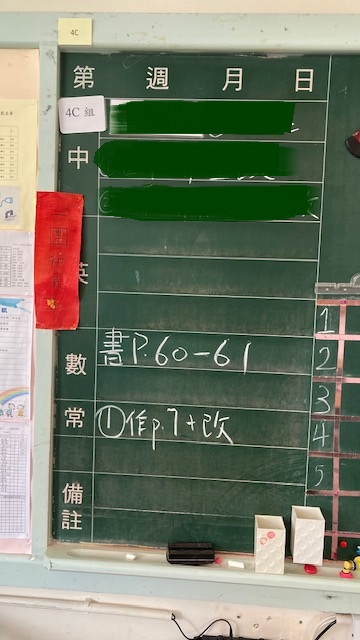 4C
第 週 月 日
4C 組
中
英
數 書P.60-61
常 ①作p.7+改
備註
1
2
3
4
5